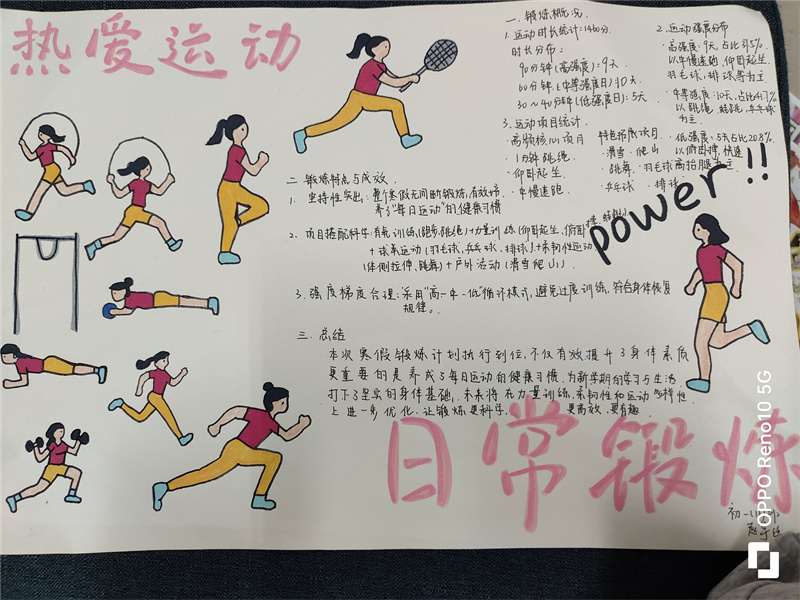 热爱运动
一、锻炼概况
1. 运动时长统计:1460分
时长分布:
90分钟(高强度):9天
60分钟(中等强度日):10天
30~40分钟(低强度日):5天
2. 运动强度分布
·高强度:9天,占比37.5%
以中慢速跑、仰卧起坐
羽毛球、排球等为主
·中等强度:10天,占比41.7%
以跳绳、蛙跳、乒乓球
为主.
·低强度:5天占比20.8%
以俯卧撑,快速
高抬腿为主
3. 运动项目统计
·高频核心项目
·1分钟跳绳
·仰卧起坐
·中慢速跑
特色拓展项目
·滑雪·爬山
·跳舞·羽毛球
·乒乓球·排球
power!!
二 锻炼特点与成效.
1. 坚持性突出:整个寒假无间断锻炼,有效培
养了"每日运动"的健康习惯
2. 项目搭配科学:有氧训练(跑步、跳绳)+力量训练(仰卧起坐、俯卧撑、蛙跳)
+球系运动(羽毛球、乒乓球、排球)+柔韧性运动
(体侧拉伸、跳舞)+户外活动(滑雪爬山).
3. 强度梯度合理:采用"高-中-低"循环模式,避免过度训练,符合身体恢复
规律。
三. 总结
本次寒假锻炼计划执行到位,不仅有效提升了身体素质
更重要的是养成了每日运动的健康习惯,为新学期的学习与生活
打下了坚实的身体基础,未来将在力量训练、柔韧性和运动多样性
上进一步优化,让锻炼更科学、更高效、更有趣.
日常锻炼
初一
OPPO Reno10 5G